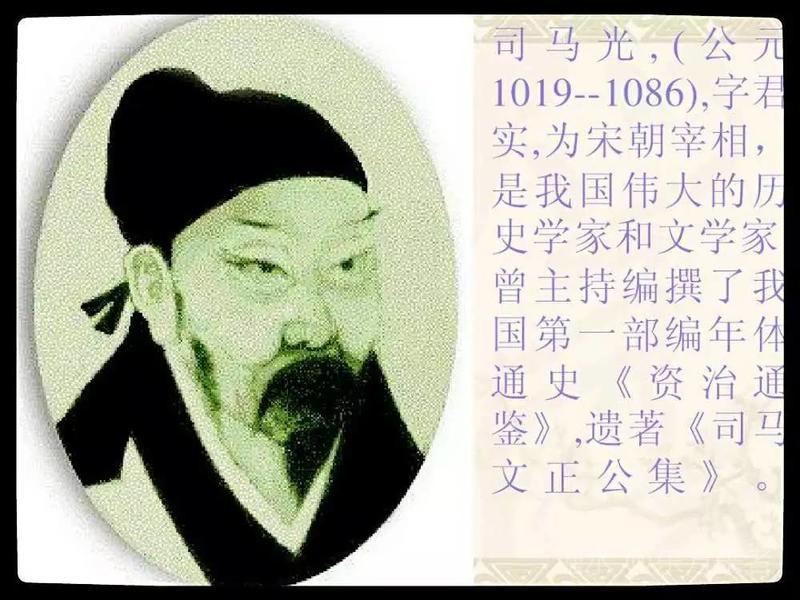 司马光,(公元
1019--1086),字君
实,为宋朝宰相，
是我国伟大的历
史学家和文学家
曾主持编撰了我
国第一部编年体
通史《资治通
鉴》,遗著《司马
文正公集》。